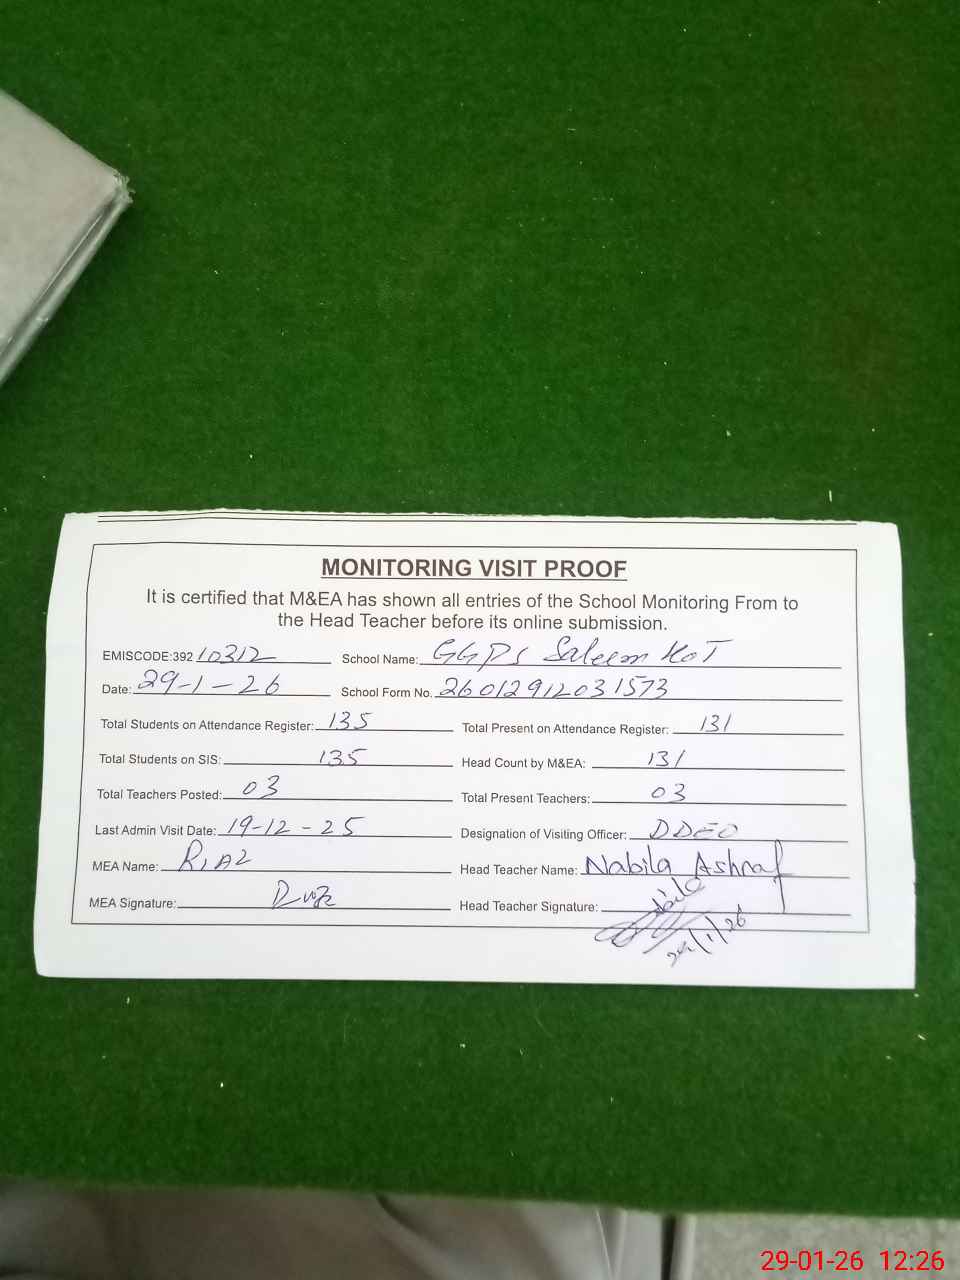 MONITORING VISIT PROOF
It is certified that M&EA has shown all entries of the School Monitoring From to
the Head Teacher before its online submission.
EMISCODE:392 10312 School Name: GGPS Saleem KoT
Date: 29-1-26 School Form No. 26012912031573
Total Students on Attendance Register: 135 Total Present on Attendance Register: 131
Total Students on SIS: 135 Head Count by M&EA: 131
Total Teachers Posted: 03 Total Present Teachers: 03
Last Admin Visit Date: 19-12-25 Designation of Visiting Officer: DDEO
MEA Name: RIAZ Head Teacher Name: Nabila Ashraf
MEA Signature: Head Teacher Signature: Nabila
29/1/26
29-01-26 12:26